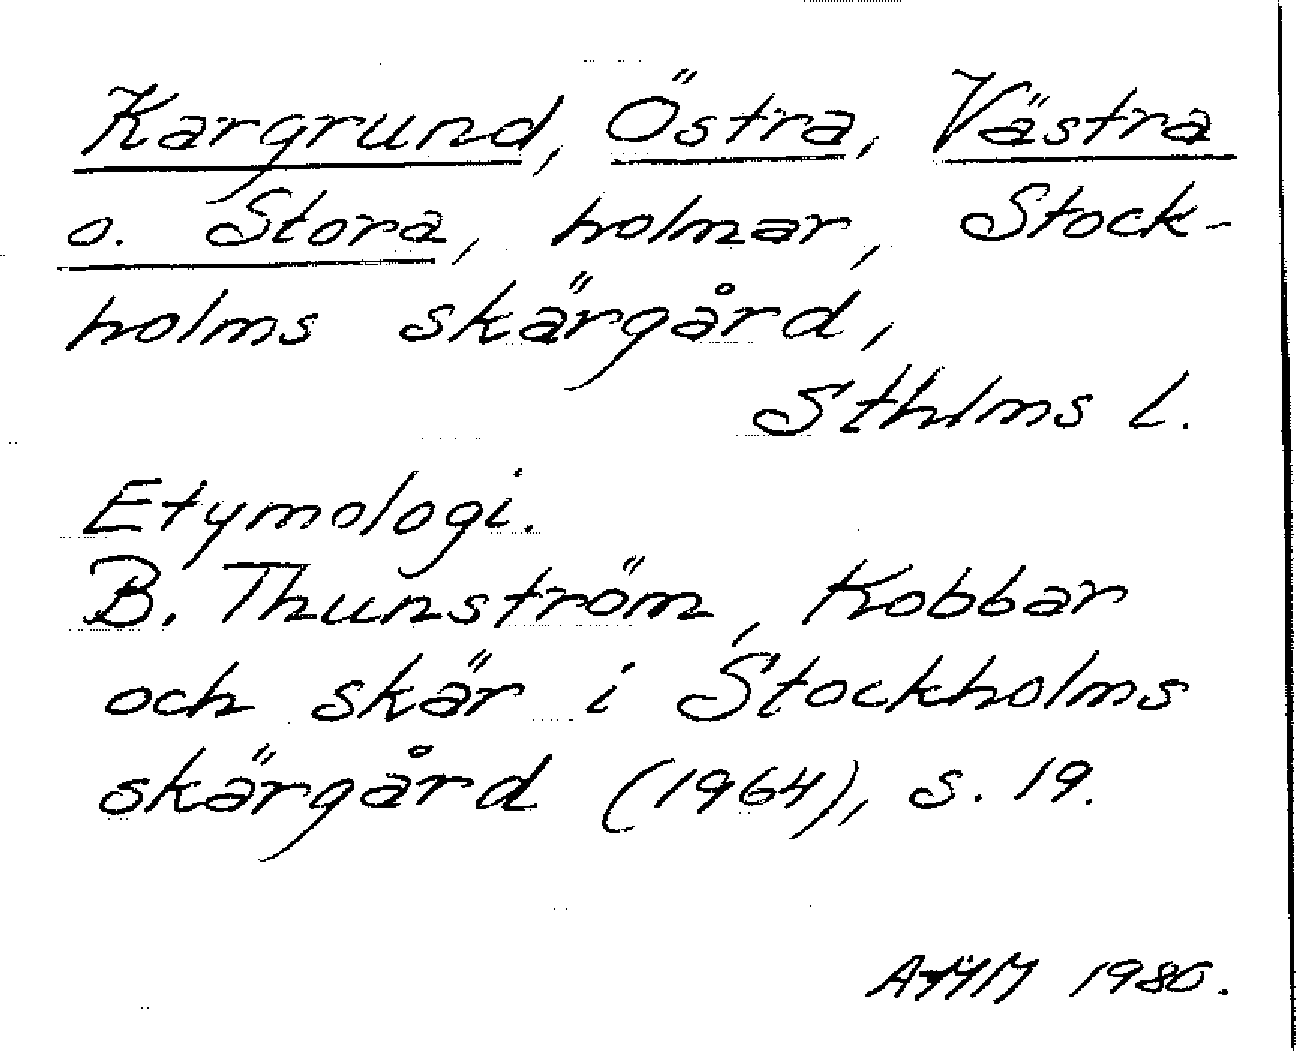 Kargrund, Östra, Västra
o. Stora, holmar, Stock-
holms skärgård,
Sthlms l.
Etymologi.
B. Thunström, Kobbar
och skär i Stockholms
skärgård (1964), s. 19.
1980.